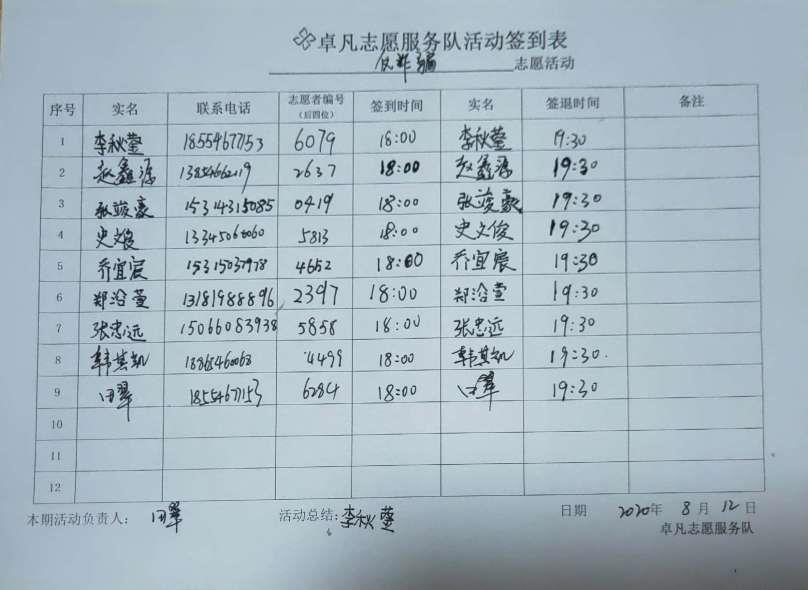 卓凡志愿服务队活动签到表
反诈骗 志愿活动
序号 实名 联系电话 志愿者编号（后四位） 签到时间 实名 签退时间 备注
1 李秋莹 18554677153 6079 18:00 李秋莹 19:30
2 赵鑫源 2637 18:00 赵鑫源 19:30
3 张竣豪 15314315085 0419 18:00 张竣豪 19:30
4 史文俊 13345060060 5813 18:00 史文俊 19:30
5 乔宜宸 15315037978 4652 18:00 乔宜宸 19:30
6 郑浴萱 13181988896 2397 18:00 郑浴萱 19:30
7 张忠远 15066083938 5858 18:00 张忠远 19:30
8 韩其凯 4499 18:00 韩其凯 19:30.
9 田翠 18554677153 6284 18:00 田翠 19:30
10
11
12
本期活动负责人： 田翠 活动总结：李秋莹 日期 2020年 8月 12日
卓凡志愿服务队